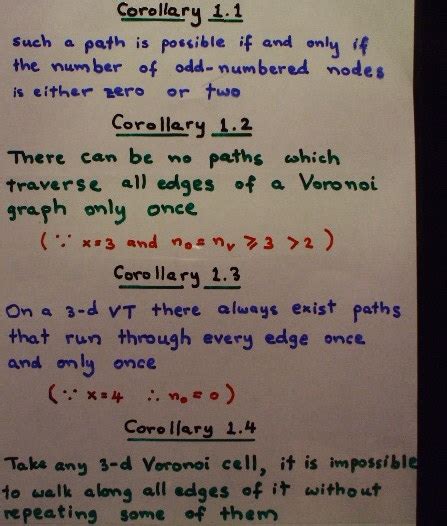 Corollary 1.1
Such a path is possible if and only if
the number of odd-numbered nodes
is either zero or two
Corollary 1.2
There can be no paths which
traverse all edges of a Voronoi
graph only once
(∵ x=3 and n₀=nᵥ ⩾3 >2)
Corollary 1.3
On a 3-d VT there always exist paths
that run through every edge once
and only once
(∵ x=4 ∴ n₀=0)
Corollary 1.4
Take any 3-d Voronoi cell, it is impossible
to walk along all edges of it without
repeating some of them